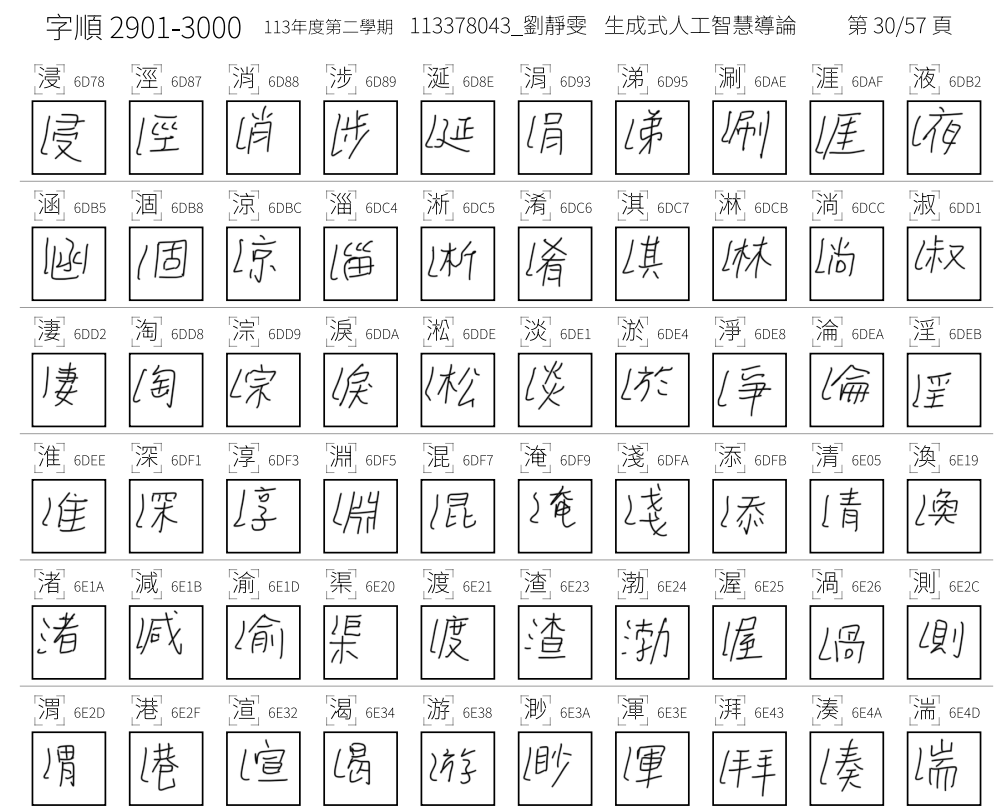 字順 2901-3000 113年度第二學期 113378043_劉靜雯 生成式人工智慧導論 第 30/57 頁
浸 6D78 涇 6D87 消 6D88 涉 6D89 涎 6D8E 涓 6D93 涕 6D95 涮 6DAE 涯 6DAF 液 6DB2
浸 涇 消 涉 涎 涓 涕 涮 涯 液
涵 6DB5 涸 6DB8 涼 6DBC 淄 6DC4 淅 6DC5 淆 6DC6 淇 6DC7 淋 6DCB 淌 6DCC 淑 6DD1
涵 涸 涼 淄 淅 淆 淇 淋 淌 淑
淒 6DD2 淘 6DD8 淙 6DD9 淚 6DDA 淞 6DDE 淡 6DE1 淤 6DE4 淨 6DE8 淪 6DEA 淫 6DEB
淒 淘 淙 淚 淞 淡 淤 淨 淪 淫
淮 6DEE 深 6DF1 淳 6DF3 淵 6DF5 混 6DF7 淹 6DF9 淺 6DFA 添 6DFB 清 6E05 渙 6E19
淮 深 淳 淵 混 淹 淺 添 清 渙
渚 6E1A 減 6E1B 渝 6E1D 渠 6E20 渡 6E21 渣 6E23 渤 6E24 渥 6E25 渦 6E26 測 6E2C
渚 減 渝 渠 渡 渣 渤 渥 渦 測
渭 6E2D 港 6E2F 渲 6E32 渴 6E34 游 6E38 渺 6E3A 渾 6E3E 湃 6E43 湊 6E4A 湍 6E4D
渭 港 渲 渴 游 渺 渾 湃 湊 湍